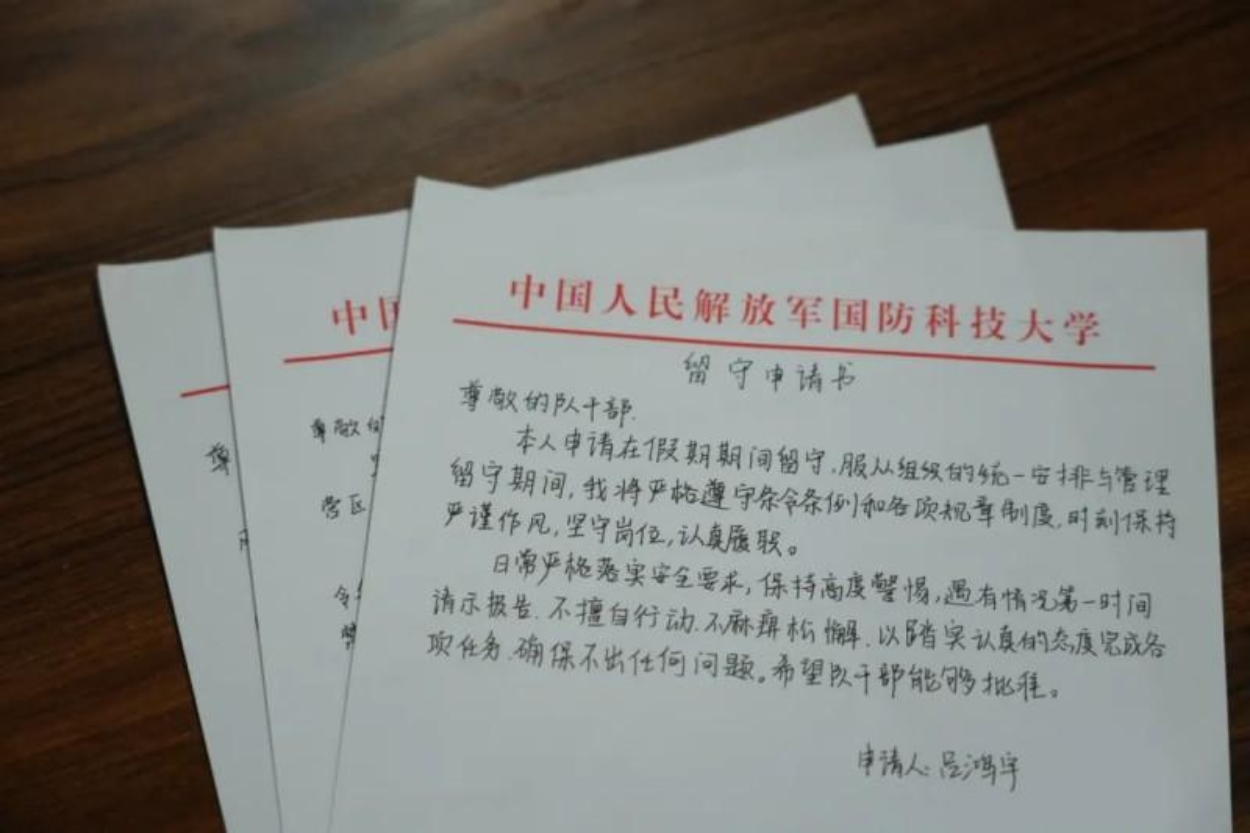 中国人民解放军国防科技大学
留守申请书
尊敬的队干部.
本人申请在假期期间留守,服从组织的统一安排与管理
留守期间,我将严格遵守条令条例和各项规章制度,时刻保持
严谨作风,坚守岗位,认真履职。
日常严格落实安全要求,保持高度警惕,遇有情况第一时间
请示报告.不擅自行动.不麻痹松懈.以踏实认真的态度完成各
项任务.确保不出任何问题。希望队干部能够批准。
申请人:吕鸿宇
中国
尊敬的
营区
令
尊